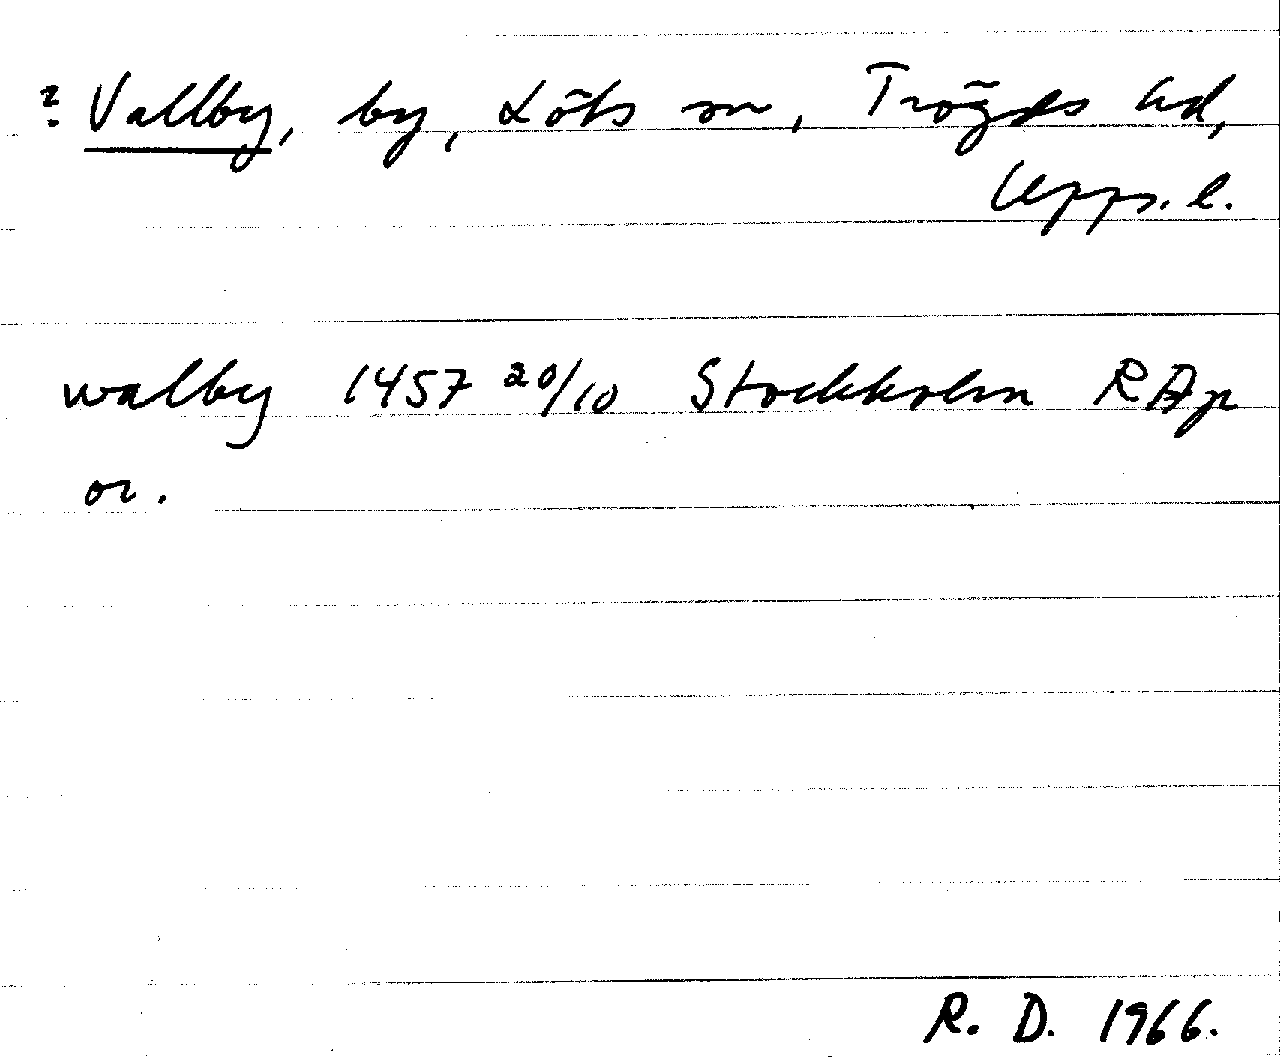 ? Vallby, by, Löts sn, Trögds hd,
Upps. l.
walby 1457 20/10 Stockholm RAp
or.
R. D. 1966.